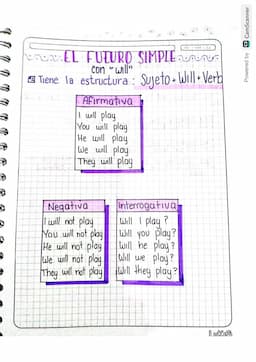 EL FUTURO SIMPLE
con "will"
Tiene la estructura: Sujeto + Will + Verb
Afirmativa
I will play
You will play
He will play
We will play
They will play
Negativa
I will not play
You will not play
He will not play
We will not play
They will not play
Interrogativa
Will I play?
Will you play?
Will he play?
Will we play?
Will they play?
Powered by CamScanner